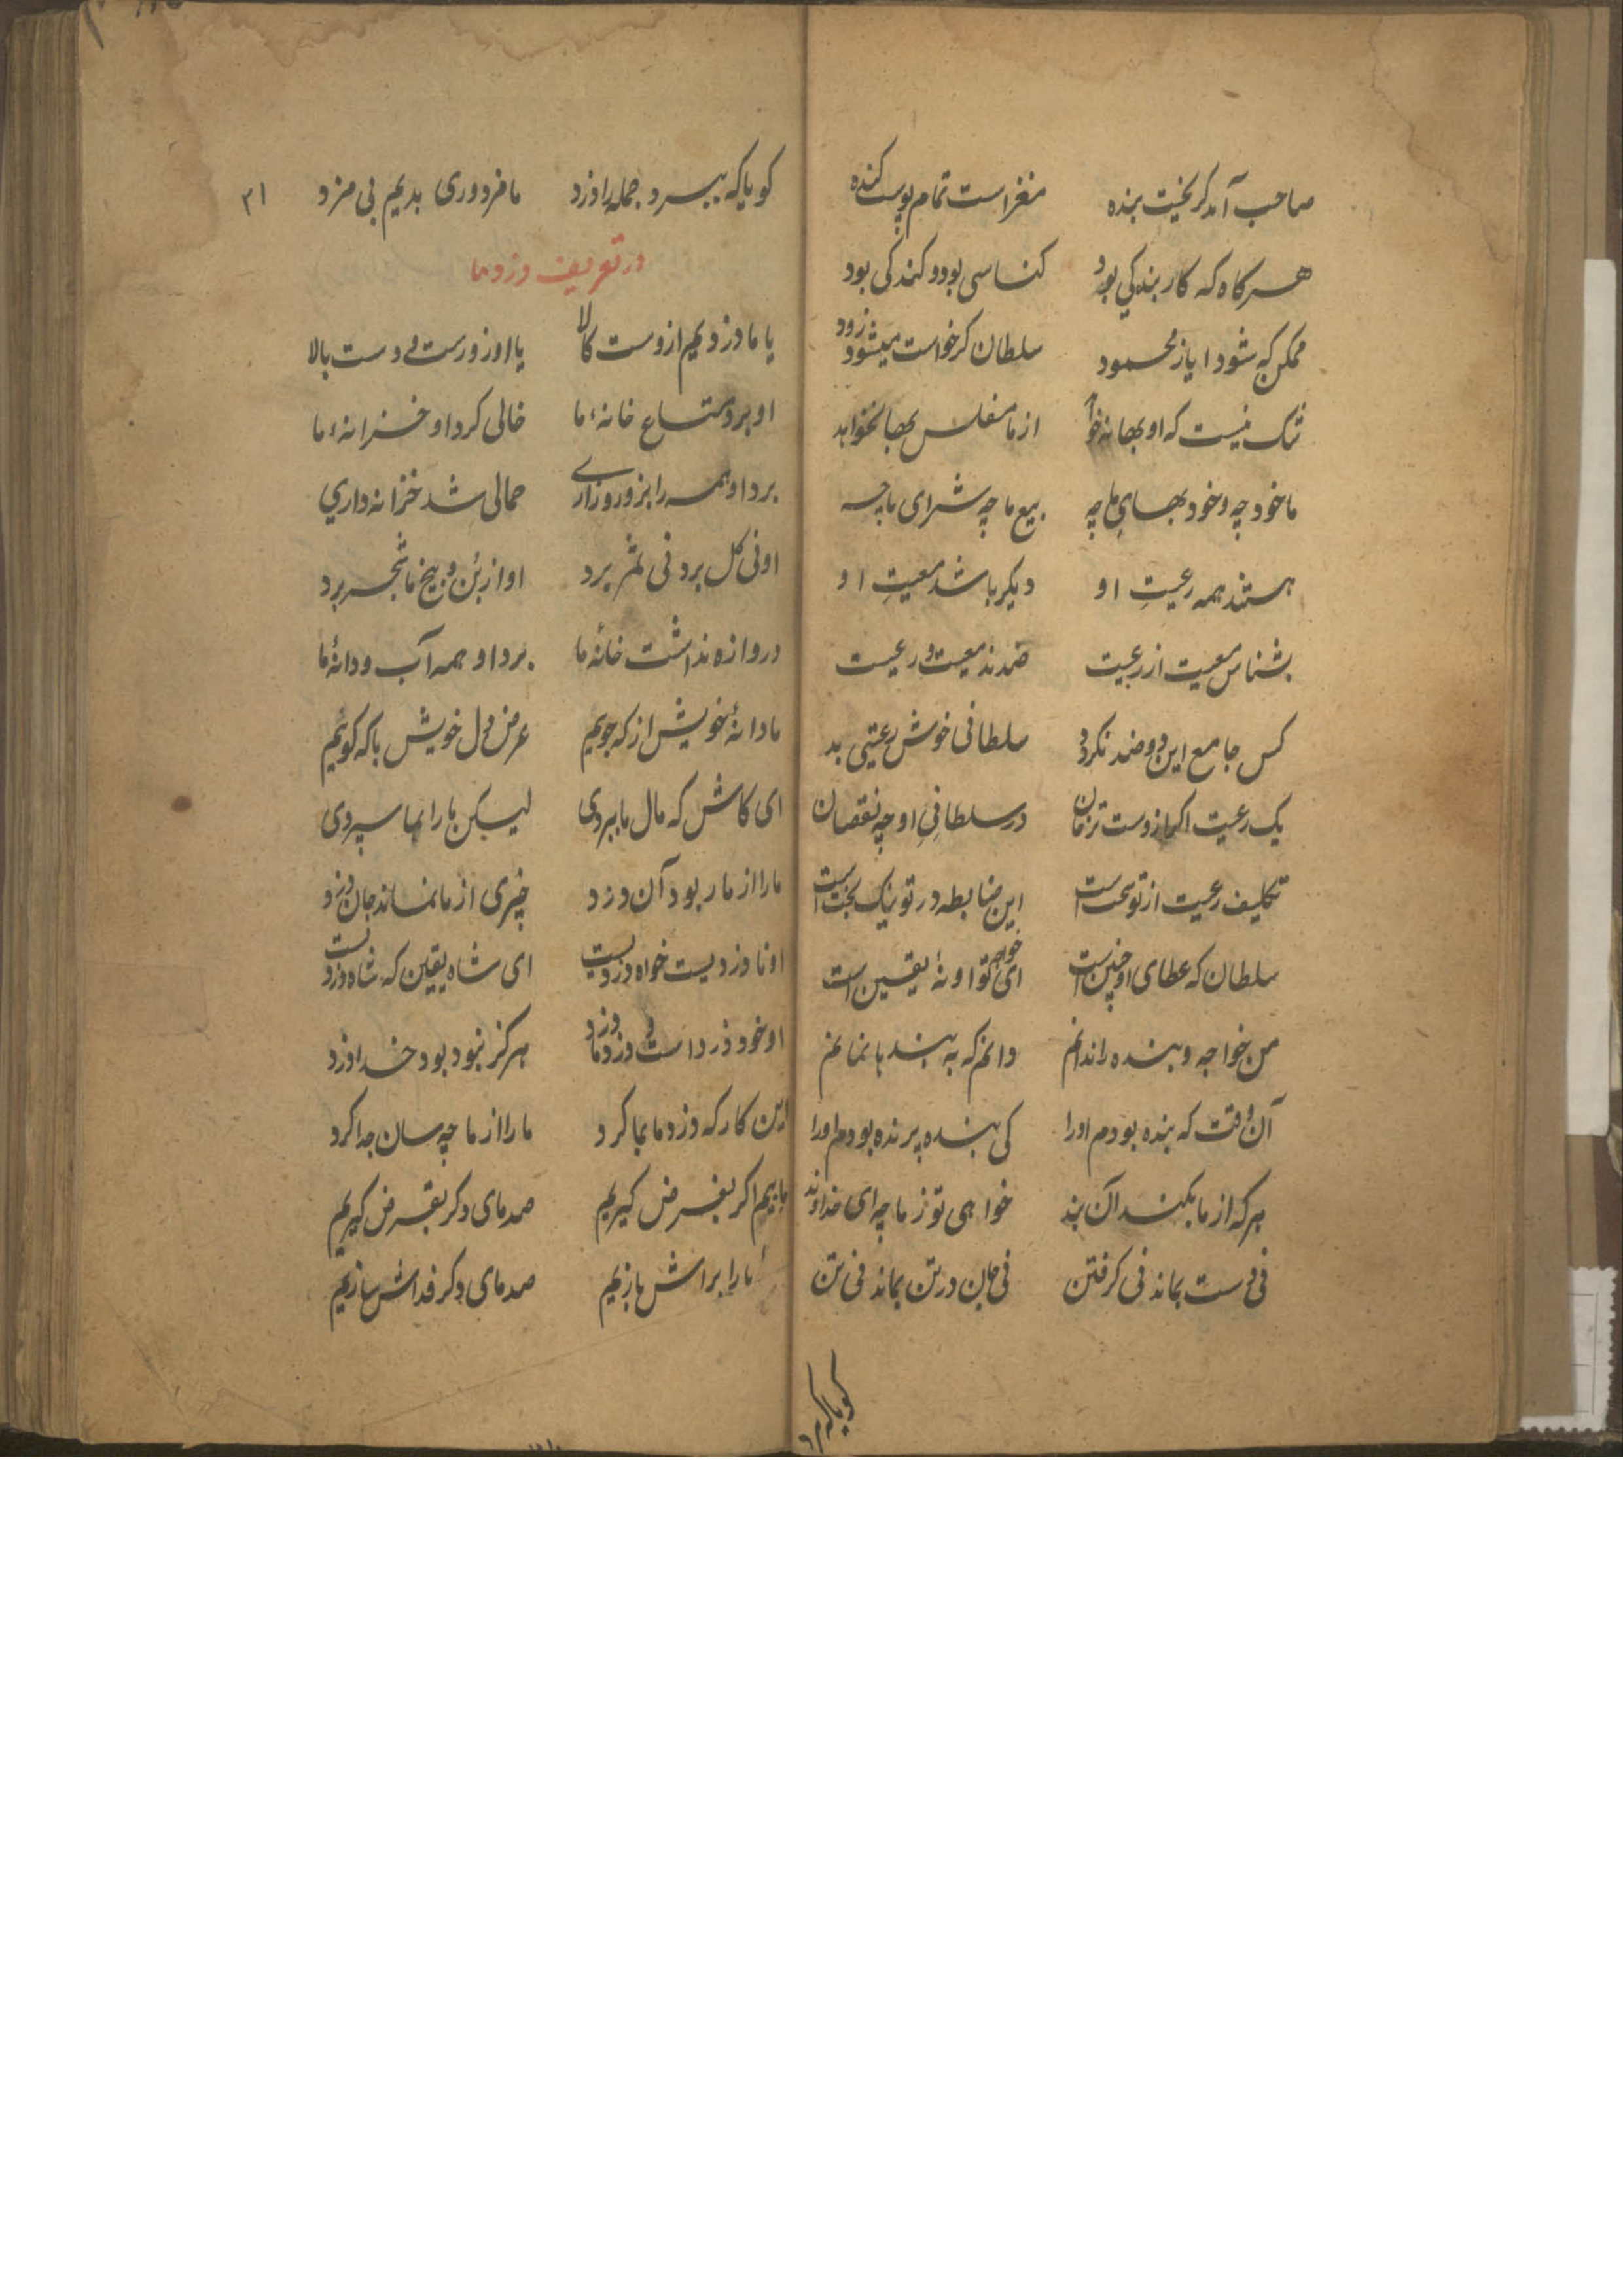 صاحب آمد گریخت بنده    مغز است تمام پوست کنده
هرکاه که کار بندکی بود    کناسی بود و کندکی بود
ممکن که شود ایاز محمود    سلطان کر خواست میشود زود
شک نیست که او بها نخواهد    از ما مفلس بها نخواهد
ما خود چه و خود بهای ما چه    بیع ما چه شرای ما چه
هستند همه رعیتِ او    دیکر باشد معیتِ او
بشناس معیت از رعیت    ضدند معیت و رعیت
کس جامع این دو ضد نکردد    سلطانی خوش رعیتی بد
یک رعیت اکر از وست ترسان    در سلطانیِ او چه نقصان
تکلیف رعیت از تو سخت است    این ضابطه در تو نیک بخت است
سلطان که عطای او چنین است    ای خواجه تو او نهٔ یقین است
من خواجه و بنده را ندانم    دانم که به بنده با نمانم
آن وقت که بنده بودم اورا    کی بنده پرنده بودم اورا
هرکه از ما بکند آن بند    خواهی تو ز ما چه ای خداوند
نی دست بماند نی کرفتن    نی جان در تن بماند نی تن
کویاکه
۳۱
کویاکه ببرد جمله را دزد    ما مزدوری بدیم بی مزد
در تعریف دزد ما
یا ما دزدیم از وست کالا    یا او دزدست و دست بالا
او برد متاع خانهٔ ما    خالی کرد او خزانهٔ ما
برد او همه را بزور و زاری    حمالی شد خزانه داری
او نی کل برد نی ثمر برد    او از بُن و بیخ ما شجر برد
دروازه نداشت خانهٔ ما    برد او همه آب و دانهٔ ما
ما دانهٔ خویش از که جویم    عرض دل خویش با که کوئیم
ای کاش که مال ما ببردی    لیکن ما را بما سپردی
ما را از ما ربود آن دزد    چیزی از ما نماند جان دزد
او نا دزدیست خواه دزدیست    ای شاه یقین که شاه دزدیست
او خود دزد است و دزد ما دزد    هرکز نبود بود خدا دزد
این کار که دزد ما بما کرد    ما را از ما چه سان جدا کرد
ماییم اکر بفرض کیریم    صد مای دکر بقرض کیریم
ما را براش بازیم    صد مای دکر فداش سازیم